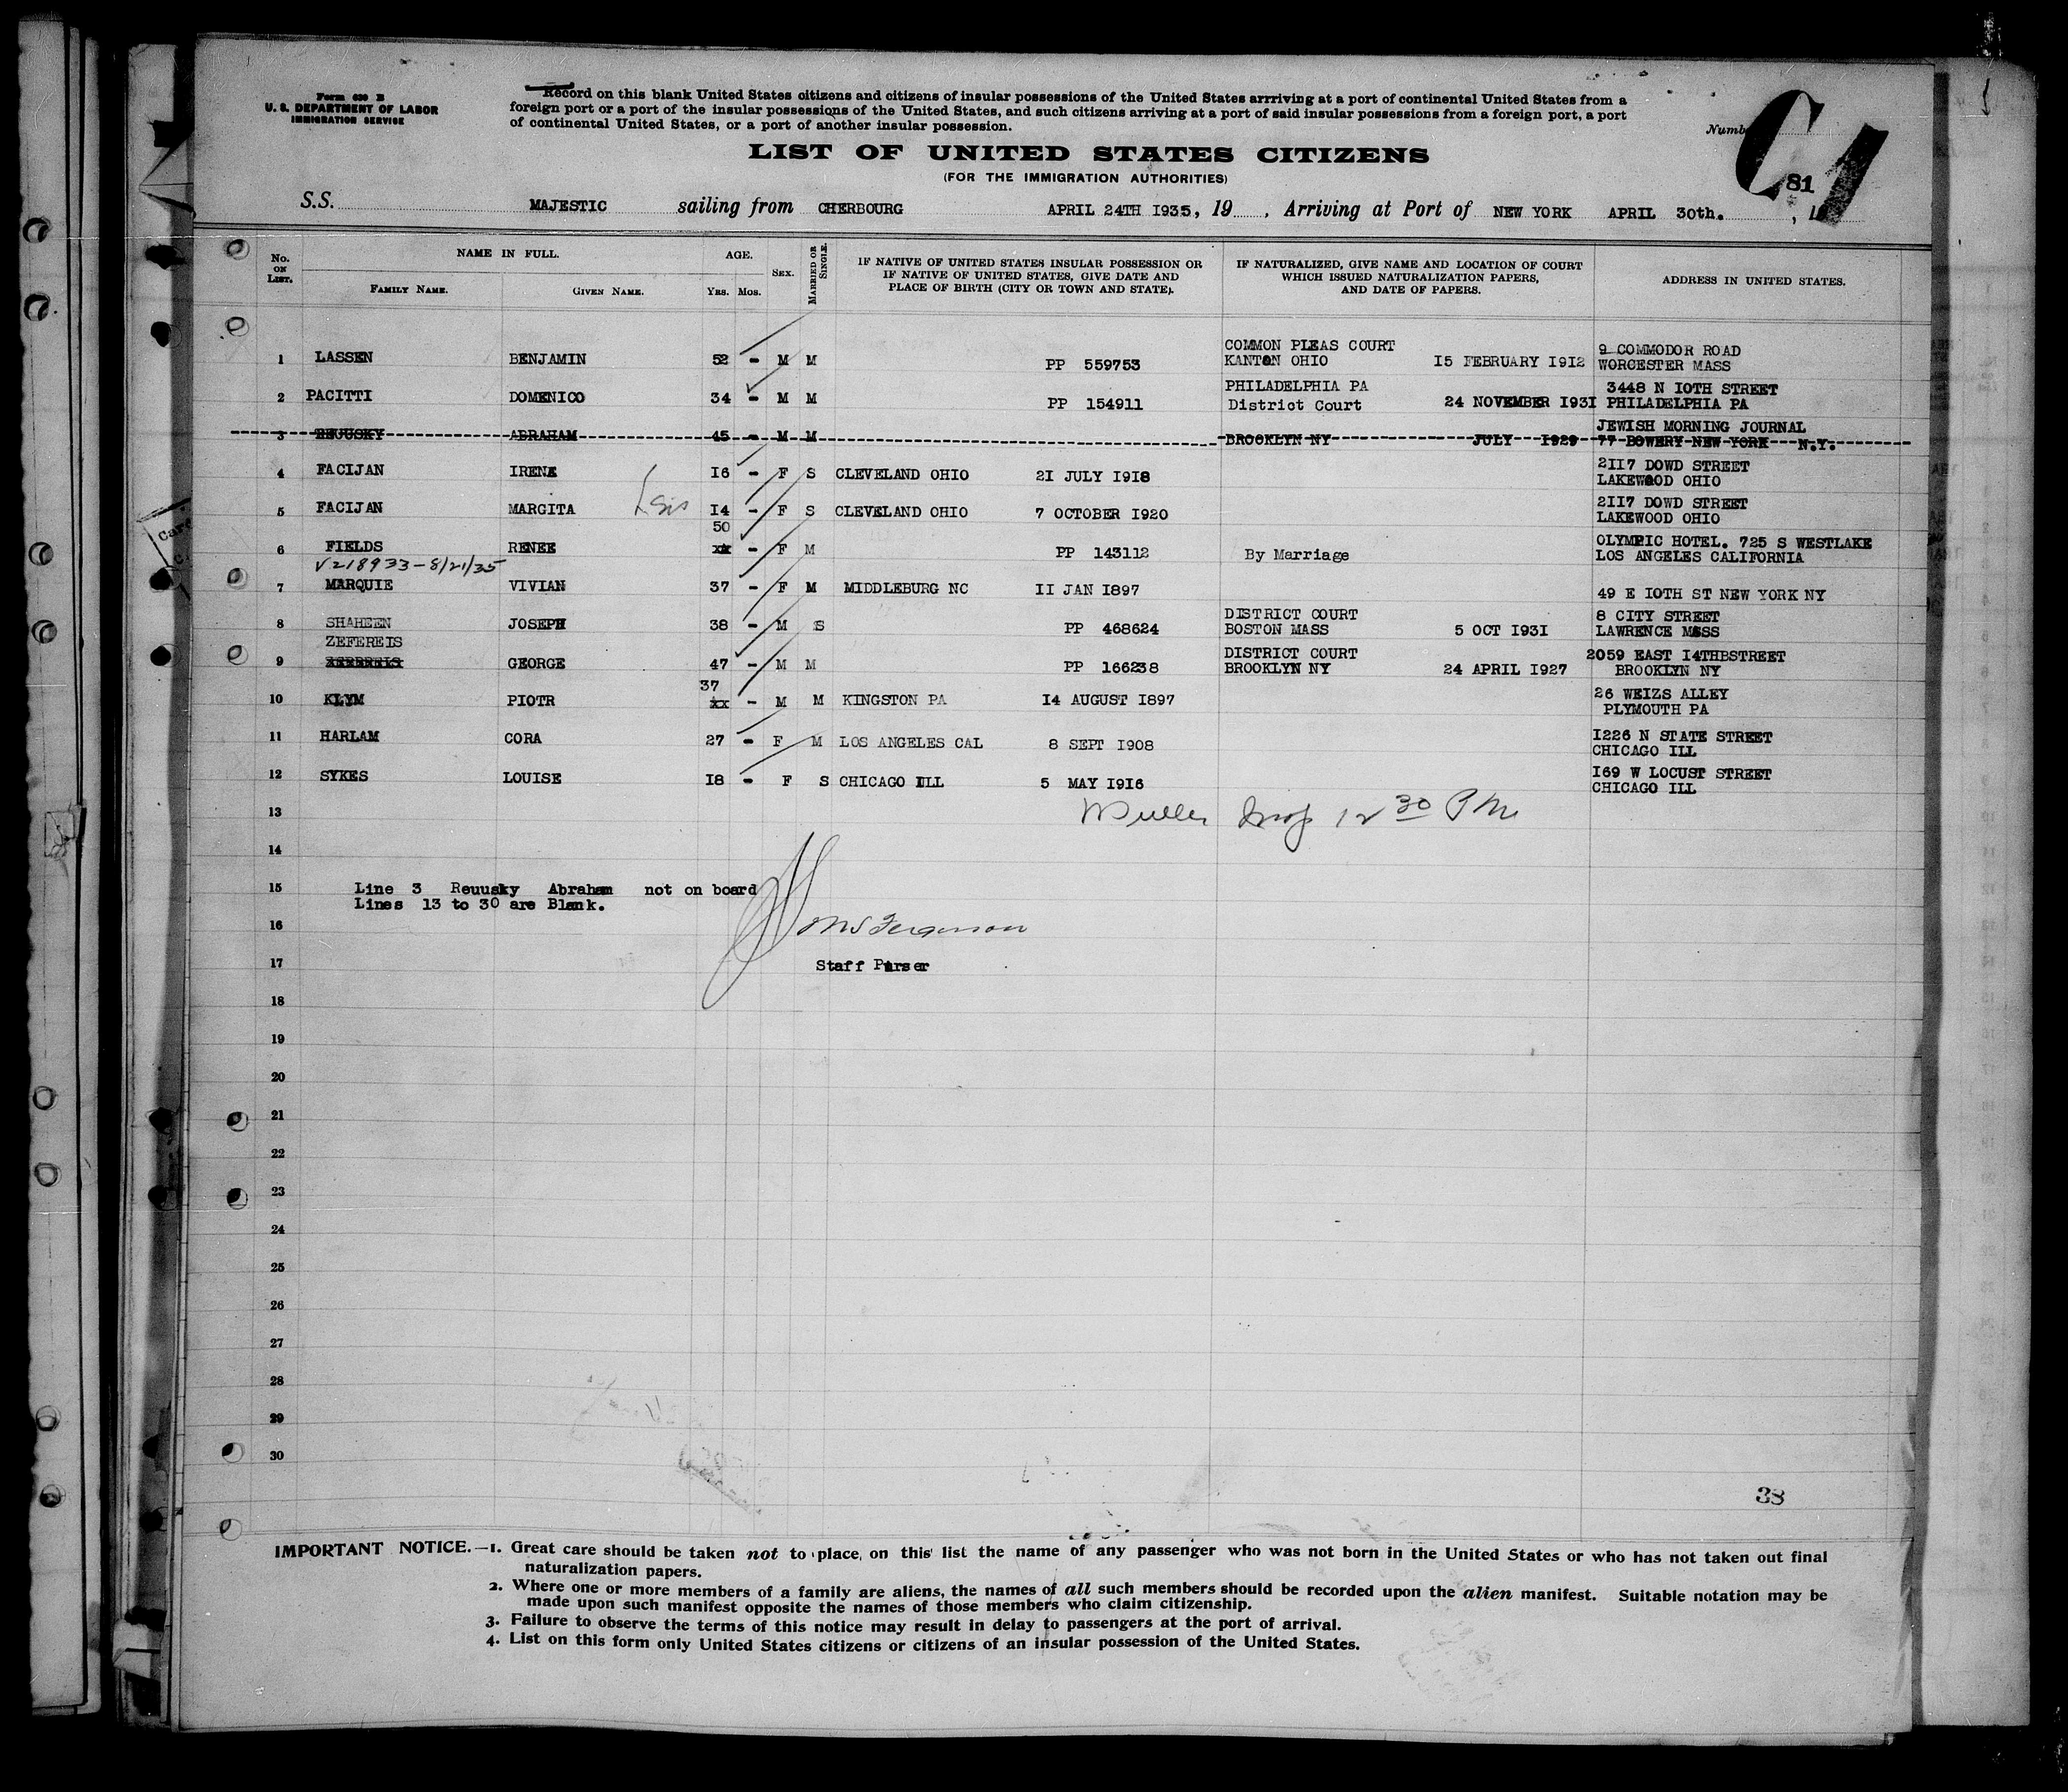 Form 630 B
U. S. DEPARTMENT OF LABOR
IMMIGRATION SERVICE
Record on this blank United States citizens and citizens of insular possessions of the United States arrriving at a port of continental United States from a
foreign port or a port of the insular possessions of the United States, and such citizens arriving at a port of said insular possessions from a foreign port, a port
of continental United States, or a port of another insular possession.
LIST OF UNITED STATES CITIZENS
(FOR THE IMMIGRATION AUTHORITIES)
81
S.S. MAJESTIC sailing from CHERBOURG APRIL 24TH 1935, 19 , Arriving at Port of NEW YORK APRIL 30th. ,
No. ON LIST.
NAME IN FULL.
FAMILY NAME. GIVEN NAME.
AGE.
YRS. MOS.
SEX.
MARRIED OR SINGLE.
IF NATIVE OF UNITED STATES INSULAR POSSESSION OR
IF NATIVE OF UNITED STATES, GIVE DATE AND
PLACE OF BIRTH (CITY OR TOWN AND STATE).
IF NATURALIZED, GIVE NAME AND LOCATION OF COURT
WHICH ISSUED NATURALIZATION PAPERS,
AND DATE OF PAPERS.
ADDRESS IN UNITED STATES.
COMMON PLEAS COURT 9 COMMODOR ROAD
1 LASSEN BENJAMIN 52 - M M PP 559753 KANTON OHIO 15 FEBRUARY 1912 WORCESTER MASS
PHILADELPHIA PA 3448 N 10TH STREET
2 PACITTI DOMENICO 34 - M M PP 154911 District Court 24 NOVEMBER 1931 PHILADELPHIA PA
JEWISH MORNING JOURNAL
3 REUUSKY ABRAHAM 45 - M M BROOKLYN NY JULY 1929 77 BOWERY NEW YORK N.Y.
2117 DOWD STREET
4 FACIJAN IRENE 16 - F S CLEVELAND OHIO 21 JULY 1918 LAKEWOOD OHIO
Sis
2117 DOWD STREET
5 FACIJAN MARGITA 14 - F S CLEVELAND OHIO 7 OCTOBER 1920 LAKEWOOD OHIO
50 OLYMPIC HOTEL. 725 S WESTLAKE
6 FIELDS RENEE xx - F M PP 143112 By Marriage LOS ANGELES CALIFORNIA
V218933-8/21/35
7 MARQUIE VIVIAN 37 - F M MIDDLEBURG NC 11 JAN 1897 49 E 10TH ST NEW YORK NY
DISTRICT COURT 8 CITY STREET
8 SHAHEEN JOSEPH 38 - M S PP 468624 BOSTON MASS 5 OCT 1931 LAWRENCE MASS
ZEFEREIS DISTRICT COURT 2059 EAST 14THBSTREET
9 GEORGE 47 - M M PP 166238 BROOKLYN NY 24 APRIL 1927 BROOKLYN NY
37 26 WEIZS ALLEY
10 KLYM PIOTR xx - M M KINGSTON PA 14 AUGUST 1897 PLYMOUTH PA
1226 N STATE STREET
11 HARLAM CORA 27 - F M LOS ANGELES CAL 8 SEPT 1908 CHICAGO ILL
169 W LOCUST STREET
12 SYKES LOUISE 18 - F S CHICAGO ILL 5 MAY 1916 CHICAGO ILL
13 Muller Insp 12 30 PM
14
15 Line 3 Reuusky Abraham not on board
Lines 13 to 30 are Blank.
16 Ferguson
17 Staff Purser
18
19
20
21
22
23
24
25
26
27
28
29
30
38
IMPORTANT NOTICE.—1. Great care should be taken not to place, on this list the name of any passenger who was not born in the United States or who has not taken out final
naturalization papers.
2. Where one or more members of a family are aliens, the names of all such members should be recorded upon the alien manifest. Suitable notation may be
made upon such manifest opposite the names of those members who claim citizenship.
3. Failure to observe the terms of this notice may result in delay to passengers at the port of arrival.
4. List on this form only United States citizens or citizens of an insular possession of the United States.